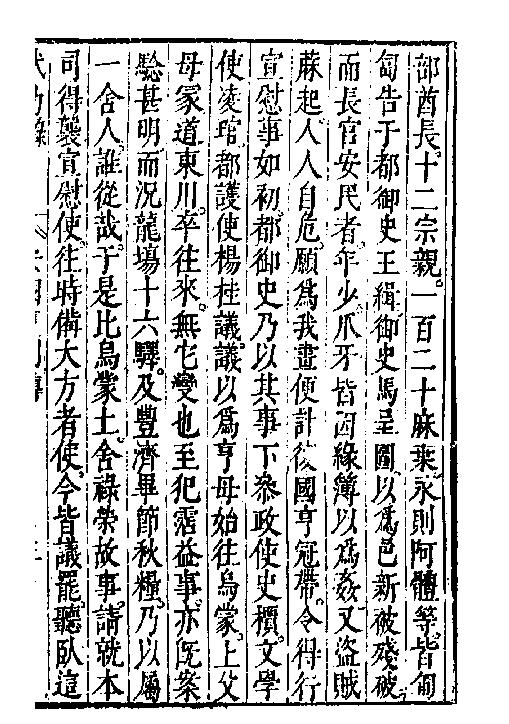 部酋長十二宗親一百二十麻葉永則阿體等皆匍
匐告于都御史王緝御史馬呈圖以為邑新被殘破
而長官安民者年少爪牙皆因緣簿以為姦又盜賊
蔴起人人自危願為我畫便計後國亨冠帶令得行
宣慰事如初都御史乃以其事下叅政使史櫃文學
使凌琯都護使楊桂議議以為亨母始往烏蒙上父
母冢道東川卒往來無它變也至犯霑益事亦旣案
驗甚明而況龍塲十六驛及豐濟畢節秋糧乃以屬
一舍人誰從哉于是比烏蒙土舍祿榮故事請就本
司得襲宣慰使往時備大方者使今皆議罷聽臥這
武功錄